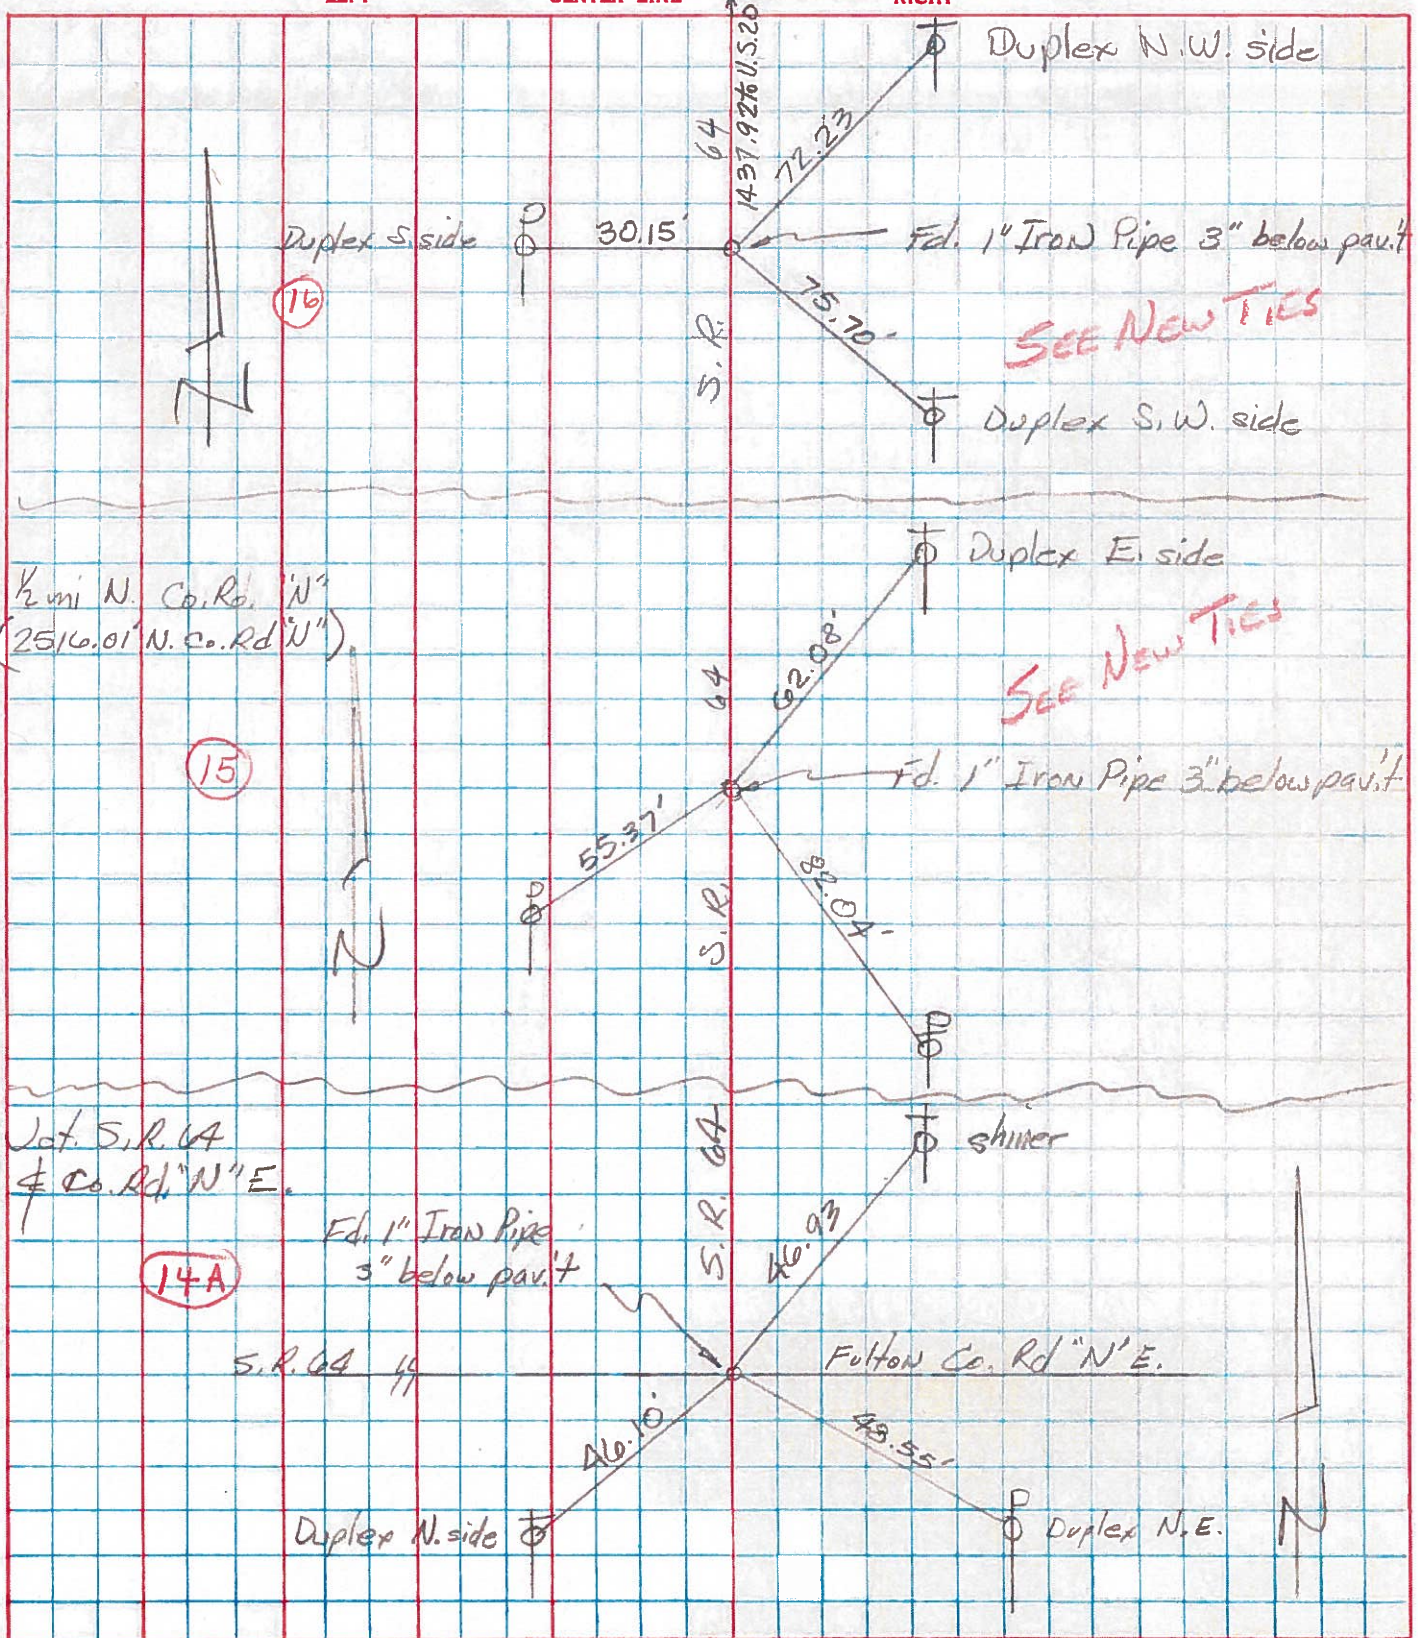 CENTER LINE
RIGHT
1437.92 to U.S. 20
Duplex N.W. side
72.23
S. R. 64
Duplex S. side
30.15'
Fd. 1" Iron Pipe 3" below pav.'t
16
75.70'
SEE NEW TIES
Duplex S.W. side
N
Duplex E. side
½ mi N. Co. Rd. "N"
(2516.01' N. Co. Rd "N")
62.08'
SEE NEW TIES
S. R. 64
15
Fd. 1" Iron Pipe 3" below pav.'t
55.37'
82.04'
N
Jct. S.R. 64
& Co. Rd. "N" E.
S.R. 64
shiner
Fd. 1" Iron Pipe
3" below pav.'t
46.93
14A
S.R. 64
Fulton Co. Rd "N" E.
46.10'
Duplex N. side
Duplex N.E.
N